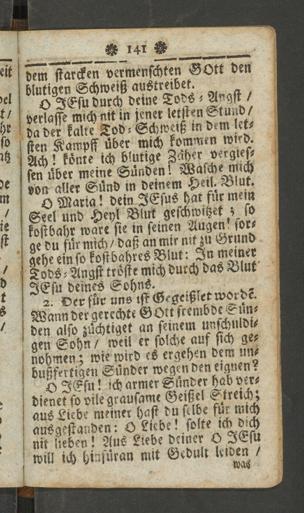 ❉ 141 ❉
dem starcken vermenschten GOtt den
blutigen Schweiß austreibet.
O JEsu durch deine Tods-Angst /
verlasse mich nit in jener letsten Stund /
da der kalte Tod-Schweiß in dem let-
sten Kampff über mich kommen wird.
Ach! könte ich blutige Zäher vergies-
sen über meine Sünden! Wasche mich
von aller Sünd in deinem Heil. Blut.
O Maria! dein JEsus hat für mein
Seel und Heyl Blut geschwitzet; so
kostbahr ware sie in seinen Augen! sor-
ge du für mich / daß an mir nit zu Grund
gehe ein so kostbahres Blut: In meiner
Tods-Angst tröste mich durch das Blut
JEsu deines Sohns.
2. Der für uns ist Gegeißlet wordē.
Wann der gerechte GOtt frembde Sün-
den also züchtiget an seinem unschuldi-
gen Sohn / weil er solche auf sich ge-
nohmen; wie wird es ergehen dem un-
bußfertigen Sünder wegen den eignen?
O JEsu! ich armer Sünder hab ver-
dienet so vile grausame Geißel Streich;
aus Liebe meiner hast du selbe für mich
ausgestanden: O Liebe! solte ich dich
nit lieben! Aus Liebe deiner O JEsu
will ich hinfüran mit Gedult leiden /
was